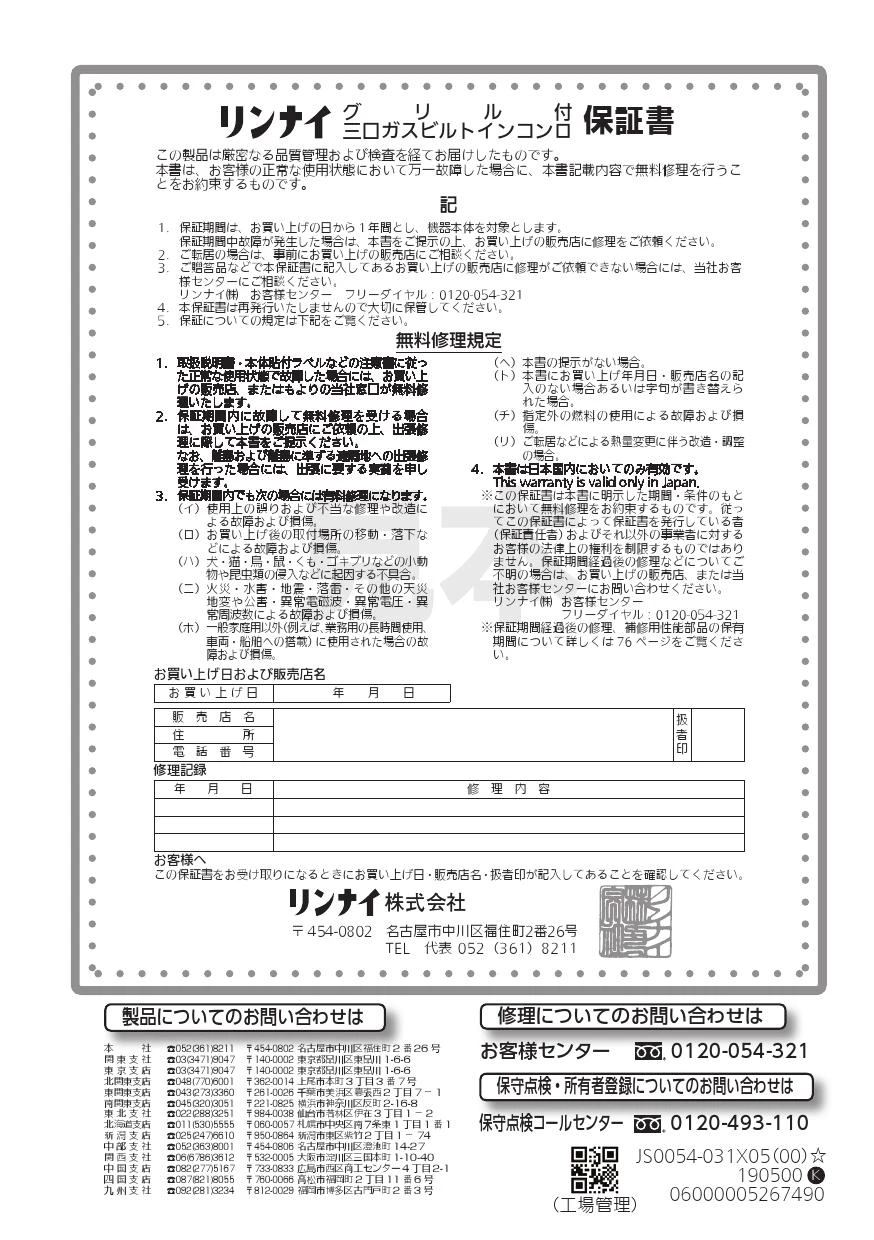 リンナイ グリル付 保証書
三口ガスビルトインコンロ
この製品は厳密なる品質管理および検査を経てお届けしたものです。
本書は、お客様の正常な使用状態において万一故障した場合に、本書記載内容で無料修理を行うこ
とをお約束するものです。
記
1. 保証期間は、お買い上げの日から1年間とし、機器本体を対象とします。
保証期間中故障が発生した場合は、本書をご提示の上、お買い上げの販売店に修理をご依頼ください。
2. ご転居の場合は、事前にお買い上げの販売店にご相談ください。
3. ご贈答品などで本保証書に記入してあるお買い上げの販売店に修理がご依頼できない場合には、当社お客
様センターにご相談ください。
リンナイ㈱ お客様センター フリーダイヤル：0120-054-321
4. 本保証書は再発行いたしませんので大切に保管してください。
5. 保証についての規定は下記をご覧ください。
無料修理規定
1. 取扱説明書・本体貼付ラベルなどの注意書に従っ
た正常な使用状態で故障した場合には、お買い上
げの販売店、またはもよりの当社窓口が無料修
理いたします。
2. 保証期間内に故障して無料修理を受ける場合
は、お買い上げの販売店にご依頼の上、出張修
理に際して本書をご提示ください。
なお、離島および離島に準ずる遠隔地への出張修
理を行った場合には、出張に要する実費を申し
受けます。
3. 保証期間内でも次の場合には有料修理になります。
(イ) 使用上の誤りおよび不当な修理や改造に
よる故障および損傷。
(ロ) お買い上げ後の取付場所の移動・落下な
どによる故障および損傷。
(ハ) 犬・猫・鳥・鼠・くも・ゴキブリなどの小動
物や昆虫類の侵入などに起因する不具合。
(ニ) 火災・水害・地震・落雷・その他の天災
地変や公害・異常電磁波・異常電圧・異
常周波数による故障および損傷。
(ホ) 一般家庭用以外(例えば、業務用の長時間使用、
車両・船舶への搭載)に使用された場合の故
障および損傷。
(ヘ) 本書の提示がない場合。
(ト) 本書にお買い上げ年月日・販売店名の記
入のない場合あるいは字句が書き替えら
れた場合。
(チ) 指定外の燃料の使用による故障および損
傷。
(リ) ご転居などによる熱量変更に伴う改造・調整
の場合。
4. 本書は日本国内においてのみ有効です。
This warranty is valid only in Japan.
※この保証書は本書に明示した期間・条件のもと
において無料修理をお約束するものです。従っ
てこの保証書によって保証書を発行している者
(保証責任者)およびそれ以外の事業者に対する
お客様の法律上の権利を制限するものではあり
ません。保証期間経過後の修理などについてご
不明の場合は、お買い上げの販売店、または当
社お客様センターにお問い合わせください。
リンナイ㈱ お客様センター
フリーダイヤル：0120-054-321
※保証期間経過後の修理、補修用性能部品の保有
期間について詳しくは76ページをご覧くださ
い。
見本
お買い上げ日および販売店名
お買い上げ日 年 月 日
販売店名
住所
電話番号
扱者印
修理記録
年 月 日 修理内容
お客様へ
この保証書をお受け取りになるときにお買い上げ日・販売店名・扱者印が記入してあることを確認してください。
リンナイ株式会社
〒454-0802 名古屋市中川区福住町2番26号
TEL 代表 052 (361) 8211
製品についてのお問い合わせは
本社 ☎052(361)8211 〒454-0802 名古屋市中川区福住町2番26号
関東支社 ☎03(3471)9047 〒140-0002 東京都品川区東品川1-6-6
東京支店 ☎03(3471)9047 〒140-0002 東京都品川区東品川1-6-6
北関東支店 ☎048(770)6001 〒362-0014 上尾市本町3丁目3番7号
東関東支店 ☎043(273)3360 〒261-0026 千葉市美浜区幕張西2丁目7-1
南関東支店 ☎045(320)3051 〒221-0825 横浜市神奈川区反町2-16-8
東北支社 ☎022(288)3251 〒984-0038 仙台市若林区伊在3丁目1-2
北海道支店 ☎011(530)5555 〒060-0057 札幌市中央区南7条東1丁目1番1
新潟支店 ☎025(247)6610 〒950-0864 新潟市東区紫竹2丁目1-74
中部支社 ☎052(363)8001 〒454-0806 名古屋市中川区澄池町14-27
関西支社 ☎06(6786)3612 〒532-0005 大阪市淀川区三国本町1-10-40
中国支店 ☎082(277)5167 〒733-0833 広島市西区商工センター4丁目2-1
四国支店 ☎087(821)8055 〒760-0066 高松市福岡町2丁目11番6号
九州支社 ☎092(281)3234 〒812-0029 福岡市博多区古門戸町2番3号
修理についてのお問い合わせは
お客様センター 0120-054-321
保守点検・所有者登録についてのお問い合わせは
保守点検コールセンター 0120-493-110
(工場管理)
JS0054-031X05(00)☆
190500 K
06000005267490